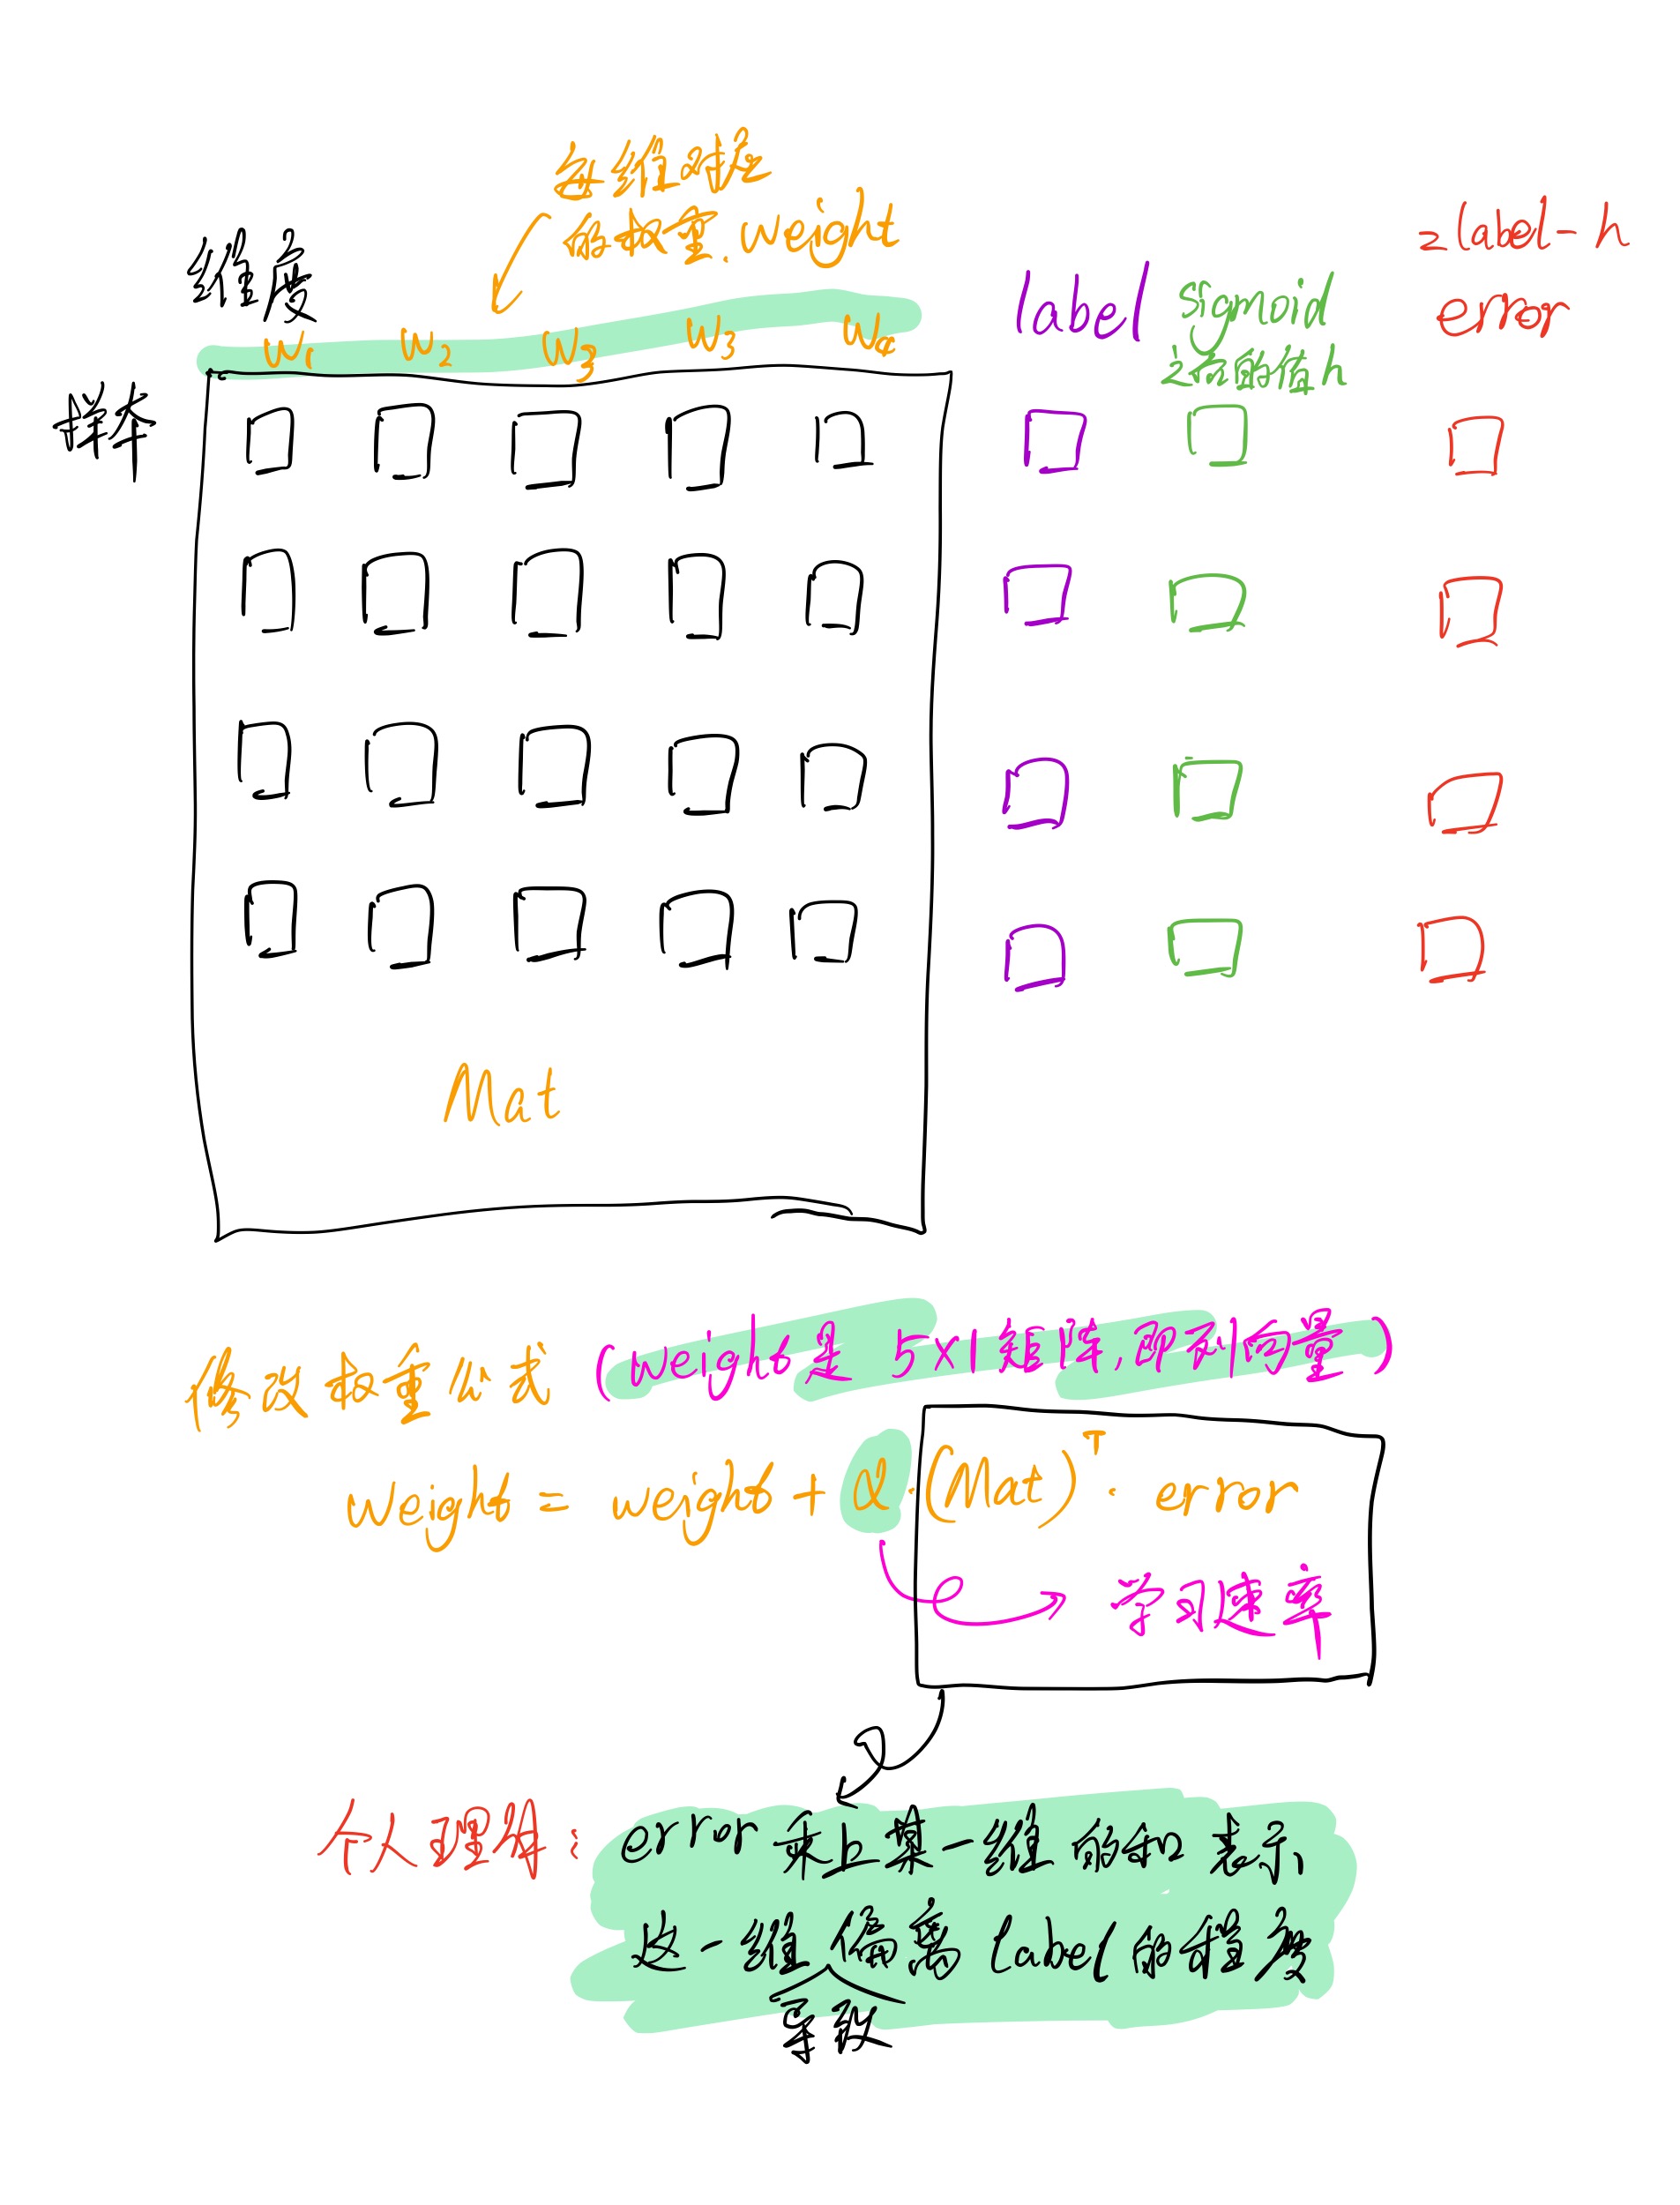 每维对应
的权重.weight
维度
W1 W2 W3 W3 W4
样本
label
sigmoid
之后的值h
=label-h
error
Mat
修改权重公式 (weight是 5×1矩阵,即列向量)
weight = weight + α·(Mat)ᵀ· error
学习速率
个人理解: error 乘上某一维的和 表示
这一维偏离 label 的程度
导致